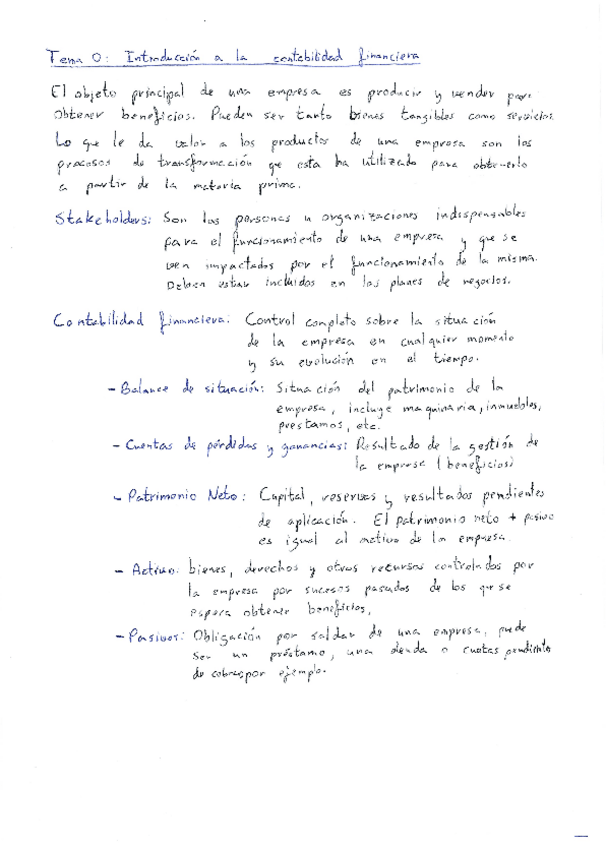 Tema 0: Introducción a la contabilidad financiera
El objeto principal de una empresa es producir y vender para
obtener beneficios. Pueden ser tanto bienes tangibles como servicios.
Lo que le da valor a los productos de una empresa son los
procesos de transformación que esta ha utilizado para obtenerlo
a partir de la materia prima.
Stakeholders: Son las personas u organizaciones indispensables
para el funcionamiento de una empresa y que se
ven impactados por el funcionamiento de la misma.
Deben estar incluidos en los planes de negocios.
Contabilidad financiera: Control completo sobre la situación
de la empresa en cualquier momento
y su evolución en el tiempo.
- Balance de situación: Situación del patrimonio de la
empresa, incluye maquinaria, inmuebles,
prestamos, etc.
- Cuentas de pérdidas y ganancias: Resultado de la gestión de
la empresa (beneficios)
- Patrimonio Neto: Capital, reservas y resultados pendientes
de aplicación. El patrimonio neto + pasivo
es igual al activo de la empresa.
- Activo: bienes, derechos y otros recursos controlados por
la empresa por sucesos pasados de los que se
espera obtener beneficios.
- Pasivos: Obligación por saldar de una empresa, puede
ser un préstamo, una deuda o cuotas pendientes
de cobros por ejemplo.